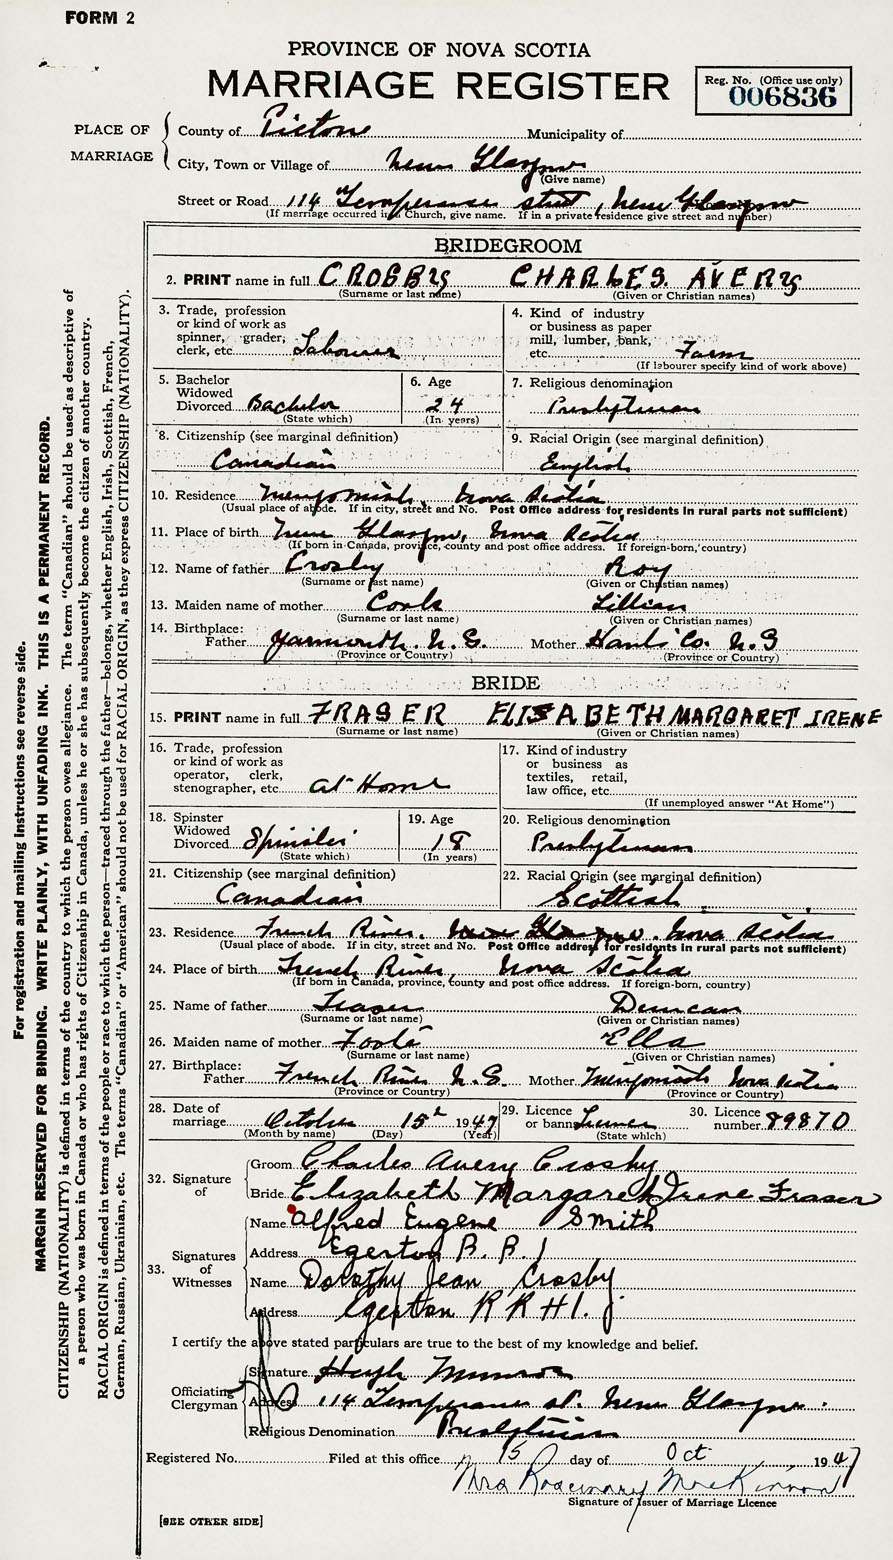 FORM 2
PROVINCE OF NOVA SCOTIA
MARRIAGE REGISTER
Reg. No. (Office use only)
006836
PLACE OF MARRIAGE
County of Pictou Municipality of
City, Town or Village of New Glasgow
(Give name)
Street or Road 114 Temperance street, New Glasgow
(If marriage occurred in a Church, give name. If in a private residence give street and number)
BRIDEGROOM
2. PRINT name in full CROSBY CHARLES AVERY
(Surname or last name) (Given or Christian names)
3. Trade, profession or kind of work as spinner, grader, clerk, etc. Labourer
4. Kind of industry or business as paper mill, lumber, bank, etc. Farm
(If labourer specify kind of work above)
5. Bachelor Widowed Divorced Bachelor
(State which)
6. Age 24
(In years)
7. Religious denomination
Presbyterian
8. Citizenship (see marginal definition)
Canadian
9. Racial Origin (see marginal definition)
English
10. Residence Merigomish, Nova Scotia
(Usual place of abode. If in city, street and No. Post Office address for residents in rural parts not sufficient)
11. Place of birth New Glasgow, Nova Scotia
(If born in Canada, province, county and post office address. If foreign-born, country)
12. Name of father Crosby Roy
(Surname or last name) (Given or Christian names)
13. Maiden name of mother Cook Lillian
(Surname or last name) (Given or Christian names)
14. Birthplace: Father Yarmouth. N.S. Mother Hants Co. N.S
(Province or Country) (Province or Country)
BRIDE
15. PRINT name in full FRASER ELIZABETH MARGARET IRENE
(Surname or last name) (Given or Christian names)
16. Trade, profession or kind of work as operator, clerk, stenographer, etc. at Home
17. Kind of industry or business as textiles, retail, law office, etc.
(If unemployed answer "At Home")
18. Spinster Widowed Divorced Spinster
(State which)
19. Age 18
(In years)
20. Religious denomination
Presbyterian
21. Citizenship (see marginal definition)
Canadian
22. Racial Origin (see marginal definition)
Scottish
23. Residence French River, New Glasgow, Nova Scotia
(Usual place of abode. If in city, street and No. Post Office address for residents in rural parts not sufficient)
24. Place of birth French River, Nova Scotia
(If born in Canada, province, county and post office address. If foreign-born, country)
25. Name of father Fraser Duncan
(Surname or last name) (Given or Christian names)
26. Maiden name of mother Foote Ella
(Surname or last name) (Given or Christian names)
27. Birthplace: Father French River N.S. Mother Merigomish Nova Scotia
(Province or Country) (Province or Country)
28. Date of marriage October 15 1947
(Month by name) (Day) (Year)
29. Licence or banns License
(State which)
30. Licence number 89870
32. Signature of
Groom Charles Avery Crosby
Bride Elizabeth Margaret Irene Fraser
33. Signatures of Witnesses
Name Alfred Eugene Smith
Address Egerton R.R.1
Name Dorothy Jean Crosby
Address Egerton R R #1.
I certify the above stated particulars are true to the best of my knowledge and belief.
Officiating Clergyman
Signature Hugh Munroe
Address 114 Temperance st. New Glasgow.
Religious Denomination Presbyterian
Registered No. Filed at this office 15 day of Oct 1947
Mrs Rosemary MacKinnon
Signature of Issuer of Marriage Licence
[SEE OTHER SIDE]
For registration and mailing instructions see reverse side.
MARGIN RESERVED FOR BINDING. WRITE PLAINLY, WITH UNFADING INK. THIS IS A PERMANENT RECORD.
CITIZENSHIP (NATIONALITY) is defined in terms of the country to which the person owes allegiance. The term "Canadian" should be used as descriptive of
a person who was born in Canada or who has rights of Citizenship in Canada, unless he or she has subsequently become the citizen of another country.
RACIAL ORIGIN is defined in terms of the people or race to which the person—traced through the father—belongs, whether English, Irish, Scottish, French,
German, Russian, Ukrainian, etc. The terms "Canadian" or "American" should not be used for RACIAL ORIGIN, as they express CITIZENSHIP (NATIONALITY).